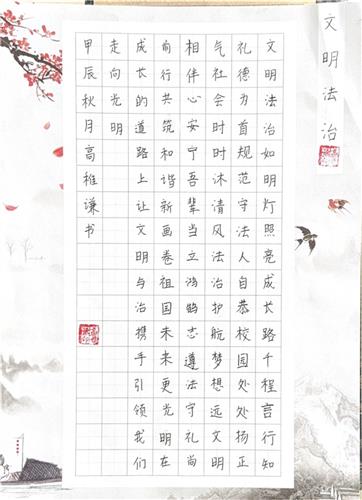 文明法治
文明法治如明灯照亮成长路千程言行知
礼德为首规范守法人自恭校园处处扬正
气社会时时沐清风法治护航梦想远文明
相伴心安宁吾辈当立鸿鹄志遵法守礼尚
前行共筑和谐新画卷祖国未来更光明在
成长的道路上让文明与治携手引领我们
走向光明
甲辰秋月高稚谦书